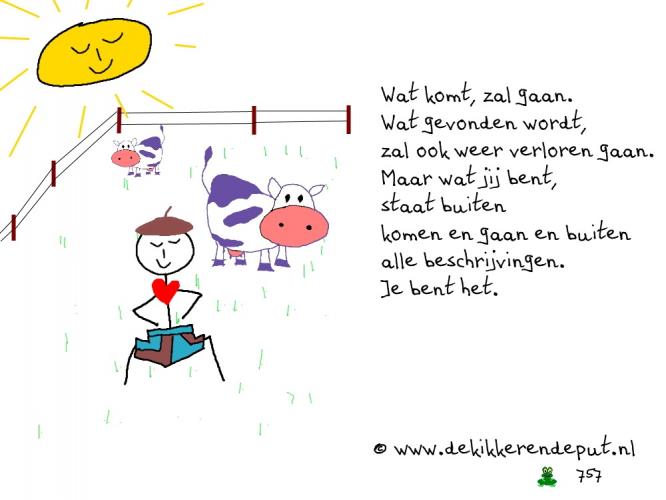 Wat komt, zal gaan.
Wat gevonden wordt,
zal ook weer verloren gaan.
Maar wat jij bent,
staat buiten
komen en gaan en buiten
alle beschrijvingen.
Je bent het.
© www.dekikkerendeput.nl
757